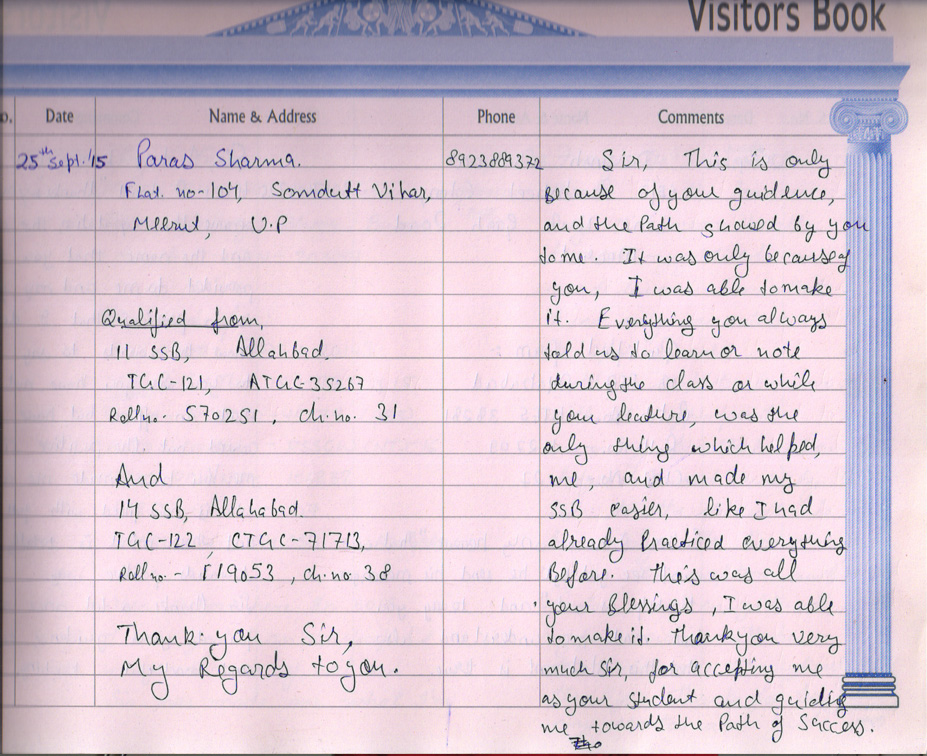 Visitors Book
Date
Name & Address
Phone
Comments
25th Sept./15
Paras Sharma.
Flat. no-104, Somdutt Vihar,
Meerut, U.P
Qualified from,
11 SSB, Allahbad,
TGC-121, ATGC-35267
Roll no. 570251, ch. no. 31
And
14 SSB, Allahabad.
TGC-122, CTGC-71713,
Roll no. - 119053, ch. no. 38
Thank you Sir,
My Regards to you.
8923889372
Sir, This is only
Because of your guidence,
and the Path showed by you
to me. It was only because of
you, I was able to make
it. Everything you always
told us to learn or note
during the class or while
your leadure, was the
only thing which helped,
me, and made my
SSB easier, like I had
already Practiced everything
Before. This was all
your Blessings, I was able
to make it. Thank you very
much Sir, for accepting me
as your student and guiding
me towards the Path of Success.